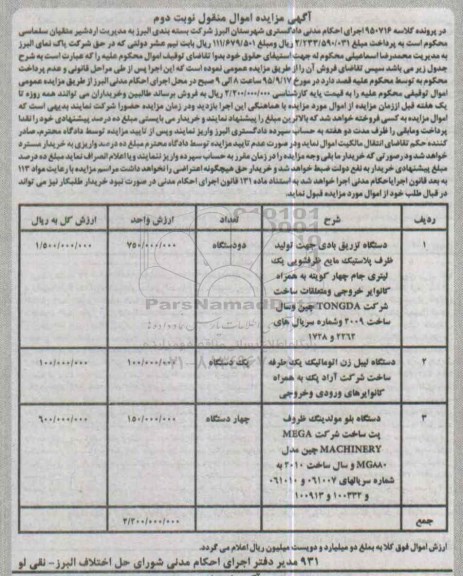 آگهی مزایده اموال منقول نوبت دوم
در پرونده کلاسه ۹۵۰۷۱۶ اجرای احکام مدنی دادگستری شهرستان البرز شرکت بسته بندی البرز به مدیریت اردشیر متقیان سلماسی
محکوم است به پرداخت مبلغ ۲/۲۳۳/۵۹۰/۰۳۱ ریال ومبلغ ۱۱۱/۶۷۹/۵۰۱ ریال بابت نیم عشر دولتی که در حق شرکت پاک نمای البرز
به مدیریت محمدرضا اسماعیلی محکوم له جهت استیفای حقوق خود بدوا تقاضای توقیف اموال محکوم علیه را که عبارت است به شرح
جدول زیر می باشد سپس تقاضای فروش آن را از طریق مزایده عمومی نموده است که این اجرا پس از طی مراحل قانونی و عدم پرداخت
محکوم به توسط محکوم علیه قصد دارد در مورخ ۹۵/۹/۱۷ راس ساعت ۸ الی ۹ صبح در محل اجرای احکام مدنی البرز از طریق مزایده عمومی
اموال توقیفی محکوم علیه را به قیمت پایه کارشناسی ۲/۲۰۰/۰۰۰/۰۰۰ ریال به فروش برساند طالبین وخریداران می توانند همه روزه تا
یک هفته قبل اززمان مزایده از اموال مورد مزایده با هماهنگی این اجرا بازدید ودر زمان مزایده حضورا شرکت نمایند بدیهی است که
اموال مزایده به کسی فروخته خواهد شد که بالاترین مبلغ را پیشنهاد نمایند و خریدار می بایستی مبلغ ده درصد پیشنهادی خود را نقدا
پرداخت ومابقی را ظرف مدت دو هفته به حساب سپرده دادگستری البرز واریز نمایند وپس از تایید مزایده توسط دادگاه محترم، صادر
کننده حکم تقاضای انتقال مالکیت اموال نماید ودر صورت عدم تایید مزایده توسط دادگاه محترم مبلغ ده درصد واریزی به خریدار مسترد
خواهد شد و درصورتی که خریدار مابقی وجه مزایده را در زمان مقرر به حساب سپرده واریز ننمایند و یا اعلام انصراف نماید مبلغ ده درصد
مبلغ پیشنهادی خریدار به نفع دولت ضبط خواهد شد و خریدار حق هیچگونه اعتراضی را نخواهد داشت مراسم مزایده با رعایت مواد ۱۱۳
به بعد قانون اجرای احکام مدنی اجرا خواهد شد به استناد ماده ۱۳۱ قانون اجرای احکام مدنی در صورت نبود خریدار طلبکار نیز می تواند
در قبال طلب خود از اموال مورد مزایده قبول نماید.
ردیف شرح تعداد ارزش واحد ارزش کل به ریال
۱ دستگاه تزریق بادی جهت تولید ظرف پلاستیک مایع ظرفشویی یک لیتری جام چهار کویته به همراه کانوایر خروجی ومتعلقات ساخت شرکت TONGDA چین وسال ساخت ۲۰۰۹ وشماره سریال های ۲۲۶۲ و ۱۷۲۸ دودستگاه ۷۵۰/۰۰۰/۰۰۰ ۱/۵۰۰/۰۰۰/۰۰۰
۲ دستگاه لیبل زن اتوماتیک یک طرفه ساخت شرکت آراد پک به همراه کانوایرهای ورودی وخروجی یک دستگاه ۱۰۰/۰۰۰/۰۰۰ ۱۰۰/۰۰۰/۰۰۰
۳ دستگاه بلو مولدینگ ظروف پت ساخت شرکت MEGA MACHINERY چین مدل MG۸۸۰ و سال ساخت ۲۰۱۰ به شماره سریالهای ۰۶۱۰۰۷ و ۰۶۱۰۱۰ و ۱۰۰۳۳۲ و ۱۰۰۹۱۳ چهار دستگاه ۱۵۰/۰۰۰/۰۰۰ ۶۰۰/۰۰۰/۰۰۰
جمع ۲/۲۰۰/۰۰۰/۰۰۰
ارزش اموال فوق کلا به مبلغ دو میلیارد و دویست میلیون ریال اعلام می گردد.
۹۳۱ مدیر دفتر اجرای احکام مدنی شورای حل اختلاف البرز- نقی لو
ParsNamadData